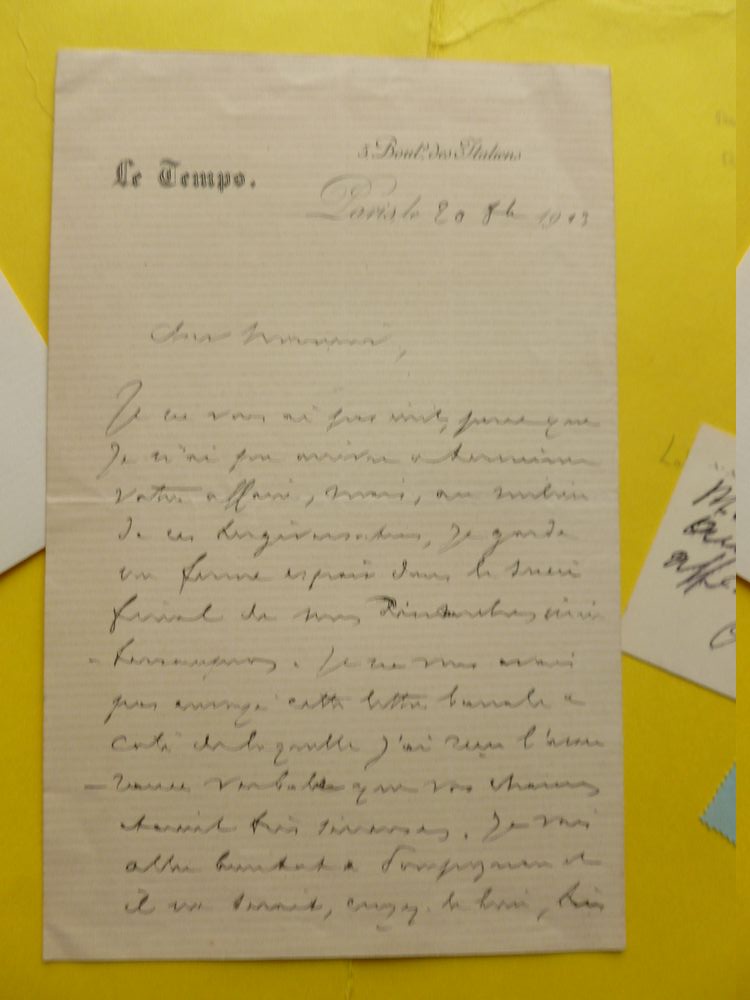 Le Temps.
5. Boulᵈ des Italiens
Paris, le 20 8bre 1913
Cher Monsieur,
Je ne vous ai pas écrit, parce que
Je n'ai pu arriver à terminer
votre affaire, mais, au milieu
de ces tergiversations, je garde
un ferme espoir dans le succès
final de nos
Je ne vous avais
pas envoyé cette lettre banale à
côté de laquelle j'ai reçu l'assu
rance verbale que vos chances
étaient très sérieuses. Je vais
aller bientôt à Perpignan et
il me serait, croyez-le bien, très